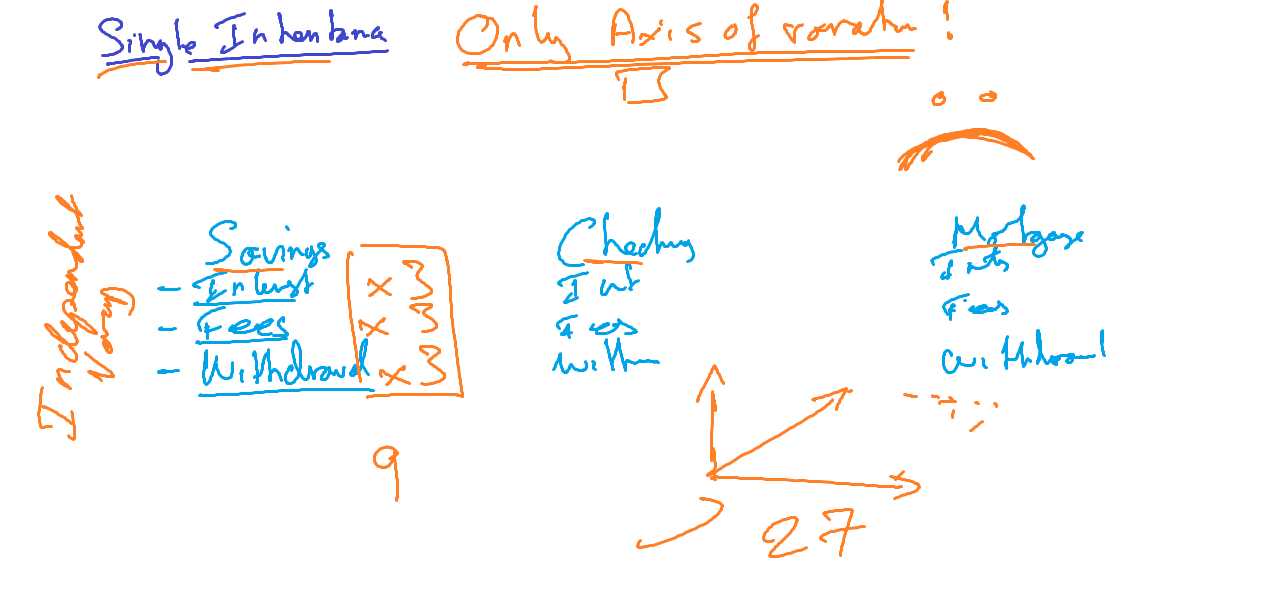 Single Inheritance Only Axis of variation!
Independent
Varying
Savings
- Interest x 3
- Fees x 3
- Withdrawal x 3
9
Checking
Int
Fees
With
Mortgage
Ints
Fees
withdrawal
27